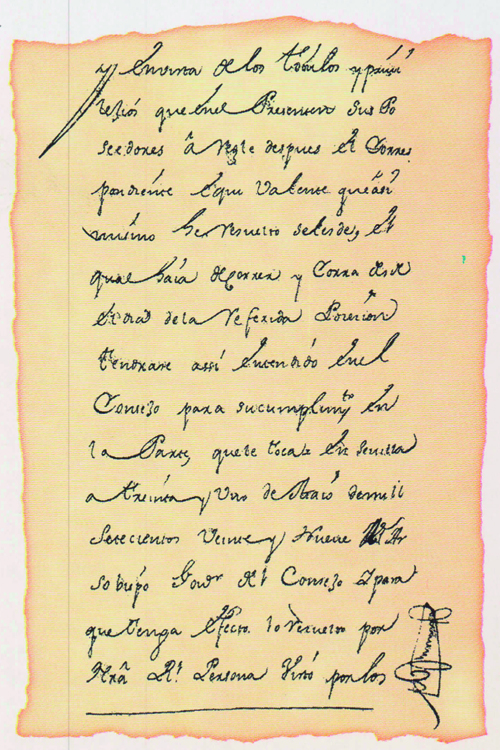 y en vista de los titulos y privi
lexios que en el Presenten sus Po
seedores à regle despues el Corres
pondiente equivalente que asi
mismo he resuelto se les de, el
qual haia de correr y corra desde
el dia de la referida Posesion
tendrase assi entendido en el
Consejo para su cumplim.to en
la Parte, que le toca = en Sevilla
a treinta y Uno de Maio de mil
Setecientos Veinte y Nueve Al Ar
sobispo Gov.or del Consejo = para
que tenga efecto lo resuelto por
Nrâ R.l Persona Visto por los